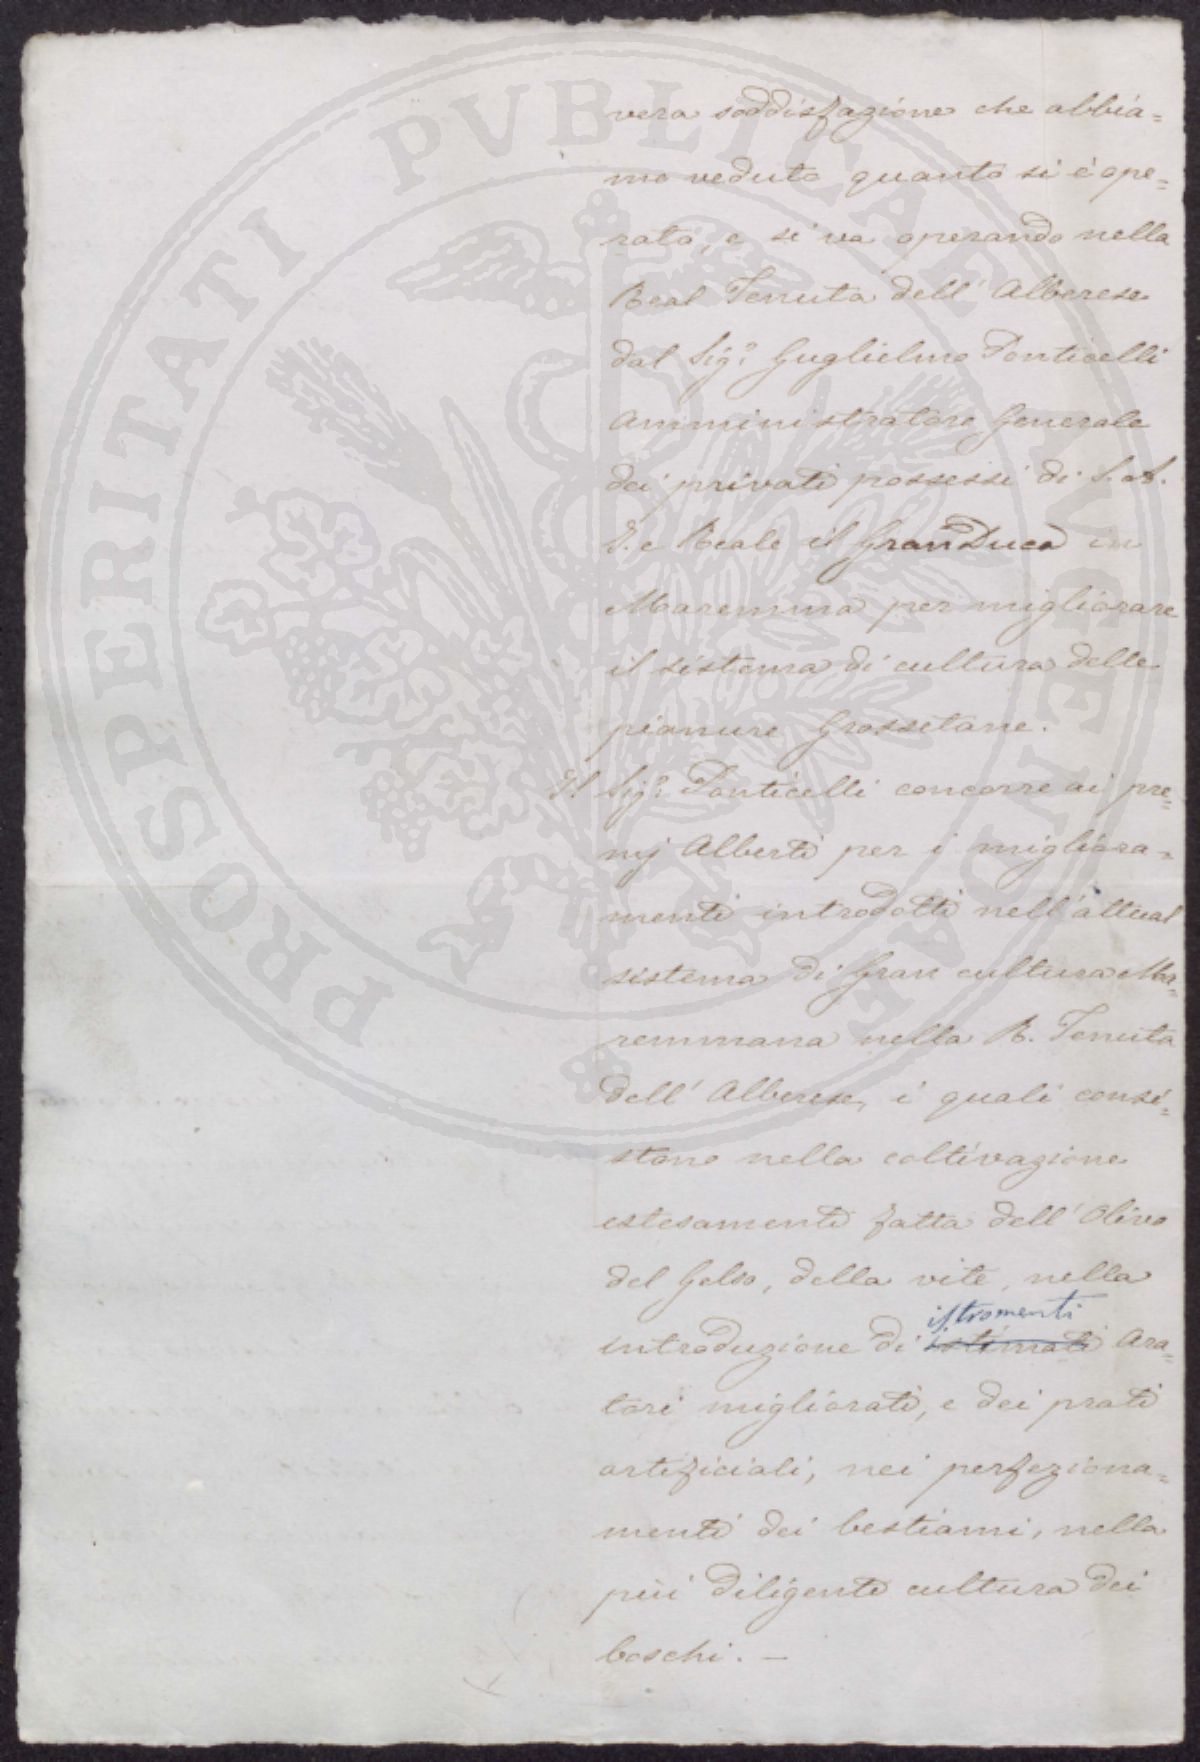 PROSPERITATI PVBLICAE AVGENDAE
vera soddisfazione che abbia=
mo veduto quanto si è ope=
rato, e si va operando nella
Real Tenuta dell' Alberese
dal Sig.r Guglielmo Ponticelli
Amministratore Generale
dei privati possessi di S. A.
I. e Reale il GranDuca in
Maremma per migliorare
il sistema di cultura delle
pianure Grossetane.
Il Sig.r Ponticelli concorre ai pre=
mj Alberti per i migliora=
menti introdotti nell'attual
sistema di Gran cultura Ma=
remmana nella R. Tenuta
dell' Alberese, i quali consi=
stono nella coltivazione
estesamente fatta dell' Olivo
del Gelso, della vite, nella
istromenti
introduzione di Ara=
tori migliorati, e dei prati
artificiali, nei perfeziona=
menti dei bestiami, nella
più diligente cultura dei
boschi. —